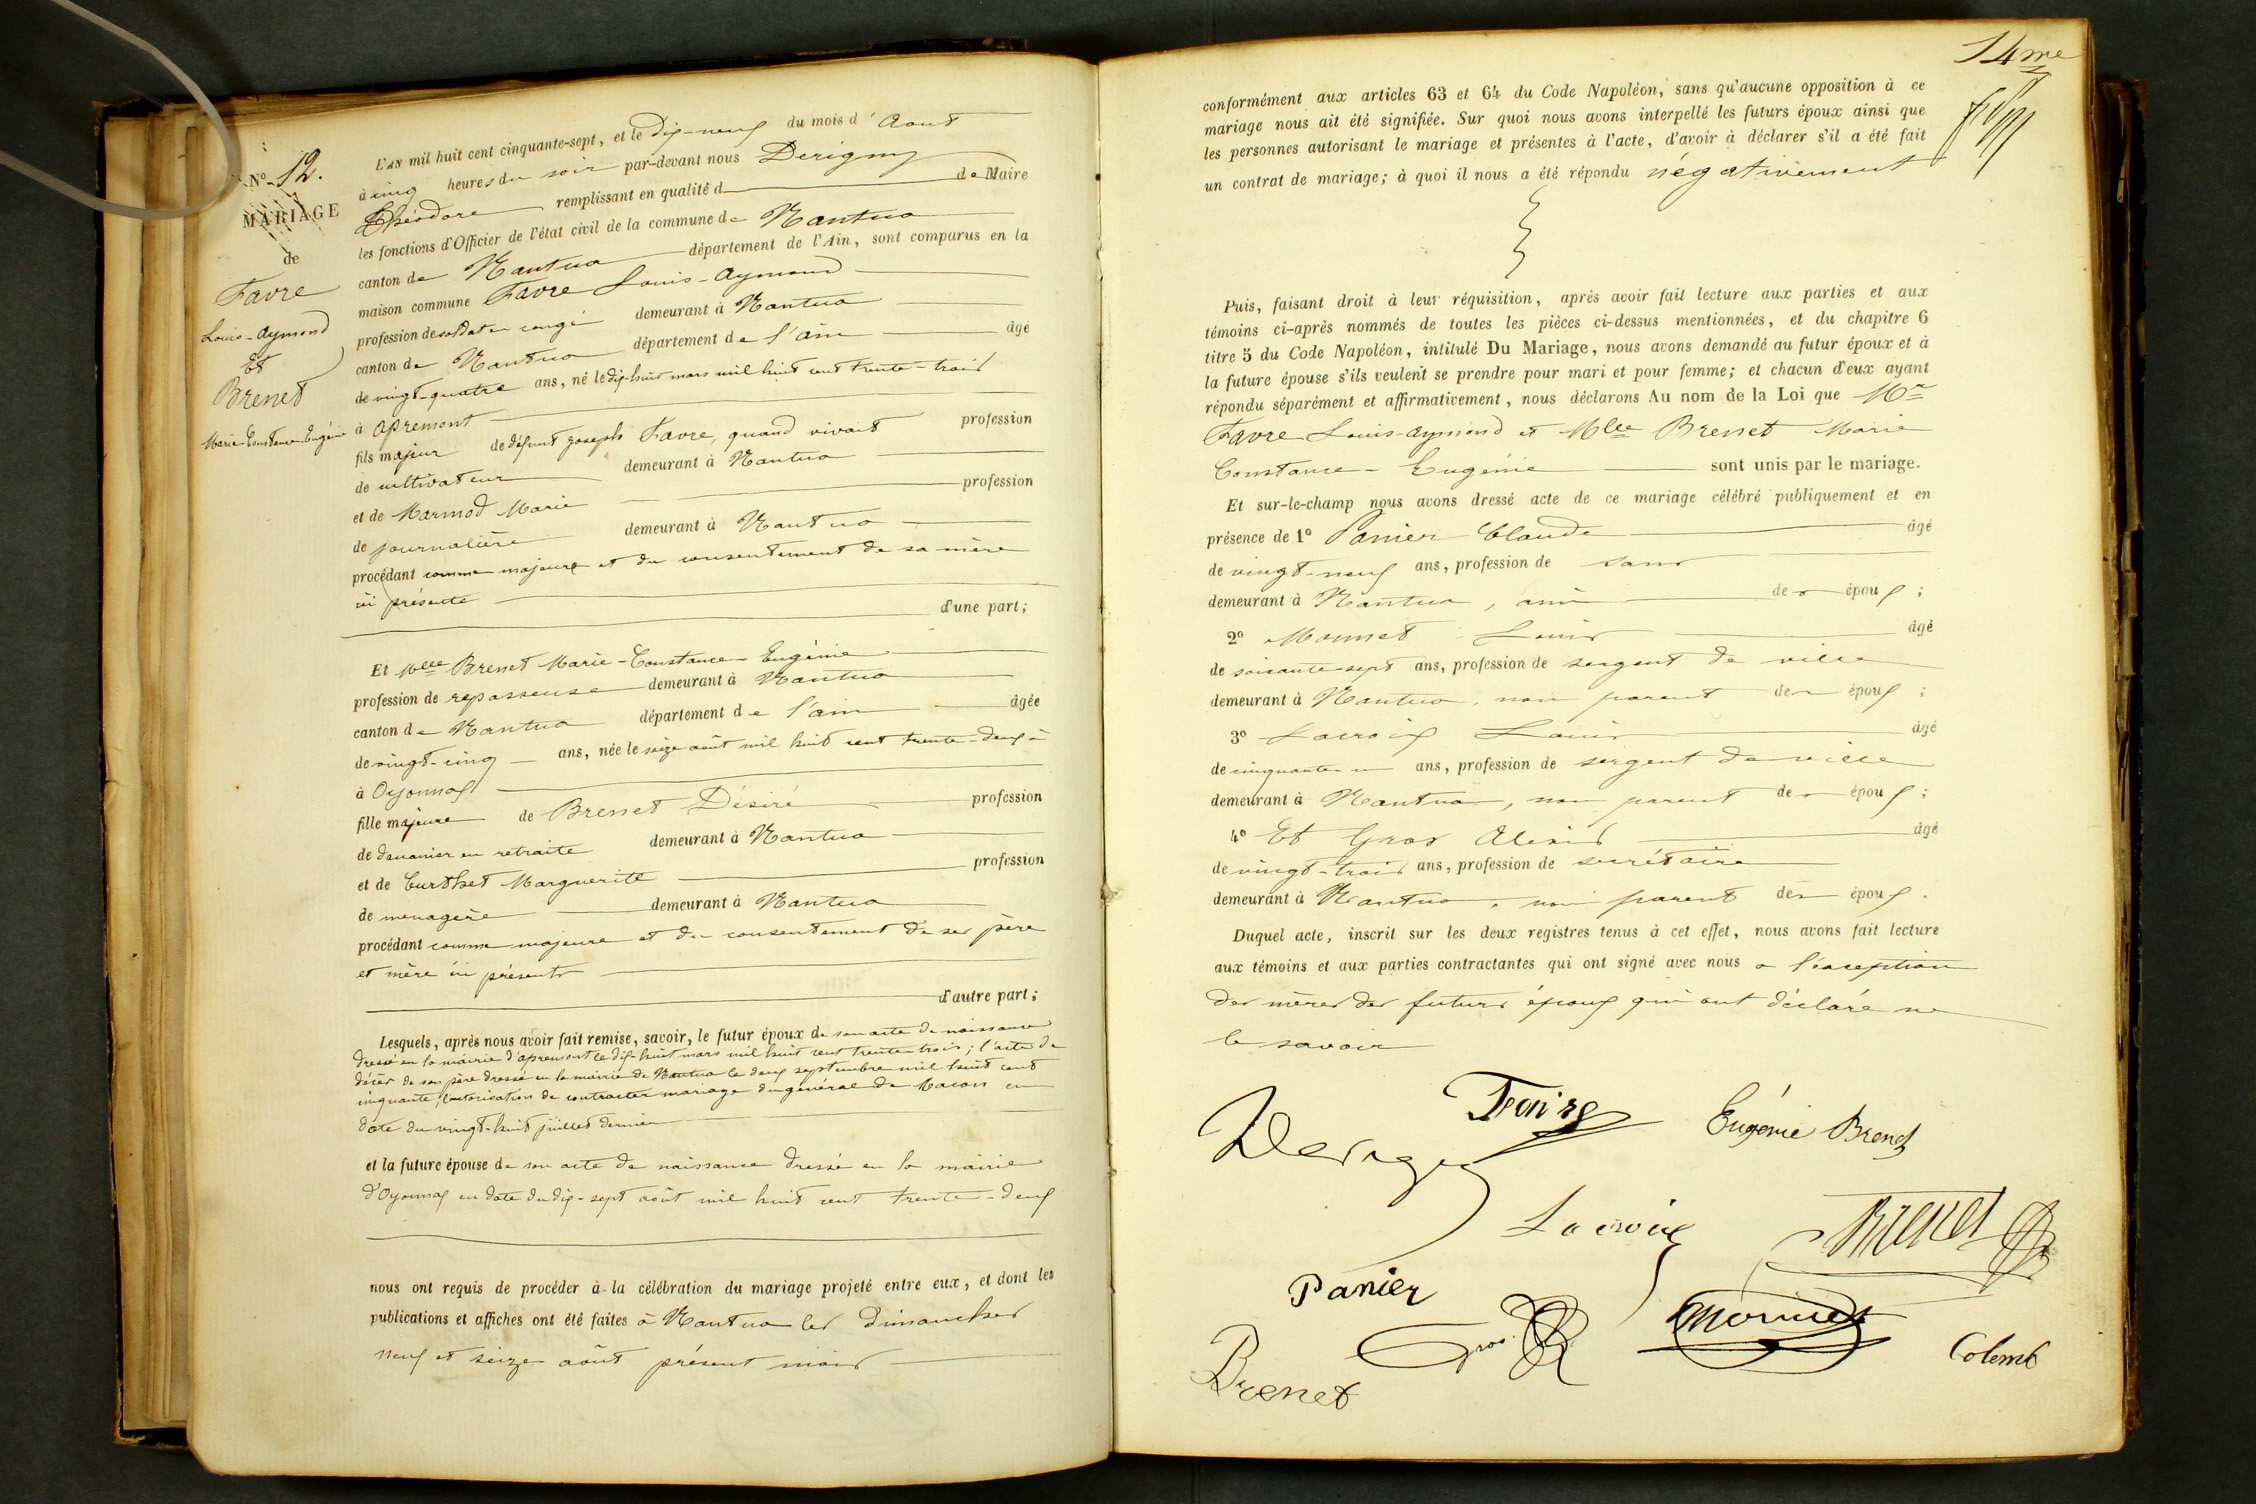 N° 12.
MARIAGE
de
Favre
Louis-Aymond
Et
Brenet
Marie-Constance-Eugénie
L'AN mil huit cent cinquante-sept, et le dix-neuf du mois d'Aout
à cinq heures du soir par-devant nous Derigny
Théodore remplissant en qualité d de Maire
les fonctions d'Officier de l'état civil de la commune de Nantua
canton de Nantua département de l'Ain, sont comparus en la
maison commune Favre Louis-Aymond
profession de soldat en congé demeurant à Nantua
canton de Nantua département de l'ain âgé
de vingt-quatre ans, né le dix-huit mars mil huit cent trente-trois
à Apremont
fils majeur de défunt joseph Favre, quand vivait profession
de cultivateur demeurant à Nantua
et de Marmod Marie profession
de journalière demeurant à Nantua
procédant comme majeure et du consentement de sa mère
ici présente
d'une part;
Et Mlle Brenet Marie-Constance-Eugénie
profession de repasseuse demeurant à Nantua
canton de Nantua département de l'ain âgée
de vingt-cinq ans, née le seize août mil huit cent trente-deux à
à Oyonnax
fille majeure de Brenet Désiré profession
de douanier en retraite demeurant à Nantua
et de Curthet Marguerite profession
de menagère demeurant à Nantua
procédant comme majeure et du consentement de ses père
et mère ici présents
d'autre part;
Lesquels, après nous avoir fait remise, savoir, le futur époux de son acte de naissance
dressé en la mairie d'apremont le dix-huit mars mil huit cent trente-trois; l'acte de
décès de son père dressé en la mairie de Nantua le deux septembre mil huit cent
cinquante; l'autorisation de contracter mariage du général de Macon en
date du vingt-huit juillet dernier
et la future épouse de son acte de naissance dressé en la mairie
d'Oyonnax en date du dix-sept août mil huit cent trente-deux
nous ont requis de procéder à la célébration du mariage projeté entre eux, et dont les
publications et affiches ont été faites à Nantua les Dimanches
neuf et seize août présent mois
14me
conformément aux articles 63 et 64 du Code Napoléon, sans qu'aucune opposition à ce
mariage nous ait été signifiée. Sur quoi nous avons interpellé les futurs époux ainsi que
les personnes autorisant le mariage et présentes à l'acte, d'avoir à déclarer s'il a été fait
un contrat de mariage; à quoi il nous a été répondu négativement
Puis, faisant droit à leur réquisition, après avoir fait lecture aux parties et aux
témoins ci-après nommés de toutes les pièces ci-dessus mentionnées, et du chapitre 6
titre 5 du Code Napoléon, intitulé Du Mariage, nous avons demandé au futur époux et à
la future épouse s'ils veulent se prendre pour mari et pour femme; et chacun d'eux ayant
répondu séparément et affirmativement, nous déclarons Au nom de la Loi que Mr
Favre Louis-Aymond et Mlle Brenet Marie
Constance-Eugénie sont unis par le mariage.
Et sur-le-champ nous avons dressé acte de ce mariage célébré publiquement et en
présence de 1° Panier Claude âgé
de vingt-neuf ans, profession de sans
demeurant à Nantua, ami des époux;
2° Monnet Louis âgé
de soixante-sept ans, profession de sergent de ville
demeurant à Nantua, non parent des époux;
3° Lacroix Louis âgé
de cinquante-un ans, profession de sergent de ville
demeurant à Nantua, non parent des époux;
4° Et Gros Alexis âgé
de vingt-trois ans, profession de secrétaire
demeurant à Nantua, non parent des époux.
Duquel acte, inscrit sur les deux registres tenus à cet effet, nous avons fait lecture
aux témoins et aux parties contractantes qui ont signé avec nous a l'exception
des mères des futurs époux qui ont déclaré ne
le savoir
Favre
Eugénie Brenet
Derigny
Lacroix
Brenet
Panier
Monnet
Gros
Colomb
Brenet